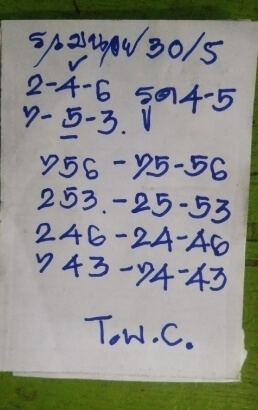 30/5
2-4-6 รูด 4-5
7-5-3.
756-75-56
253.-25-53
246-24-46
743-74-43
T.W.C.